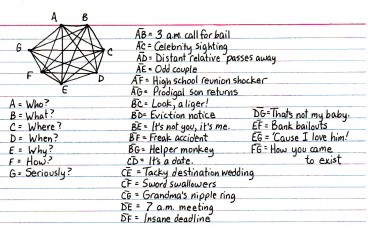 A
B
G
C
F
D
E
A = Who?
B = What?
C = Where?
D = When?
E = Why?
F = How?
G = Seriously?
AB = 3 a.m. call for bail
AC = Celebrity sighting
AD = Distant relative passes away
AE = Odd couple
AF = High school reunion shocker
AG = Prodigal son returns
BC = Look, a liger!
BD = Eviction notice
BE = It's not you, it's me.
BF = Freak accident
BG = Helper monkey
CD = It's a date.
CE = Tacky destination wedding
CF = Sword swallowers
CG = Grandma's nipple ring
DE = 7 a.m. meeting
DF = Insane deadline
DG = That's not my baby.
EF = Bank bailouts
EG = 'Cause I love him!
FG = How you came
to exist